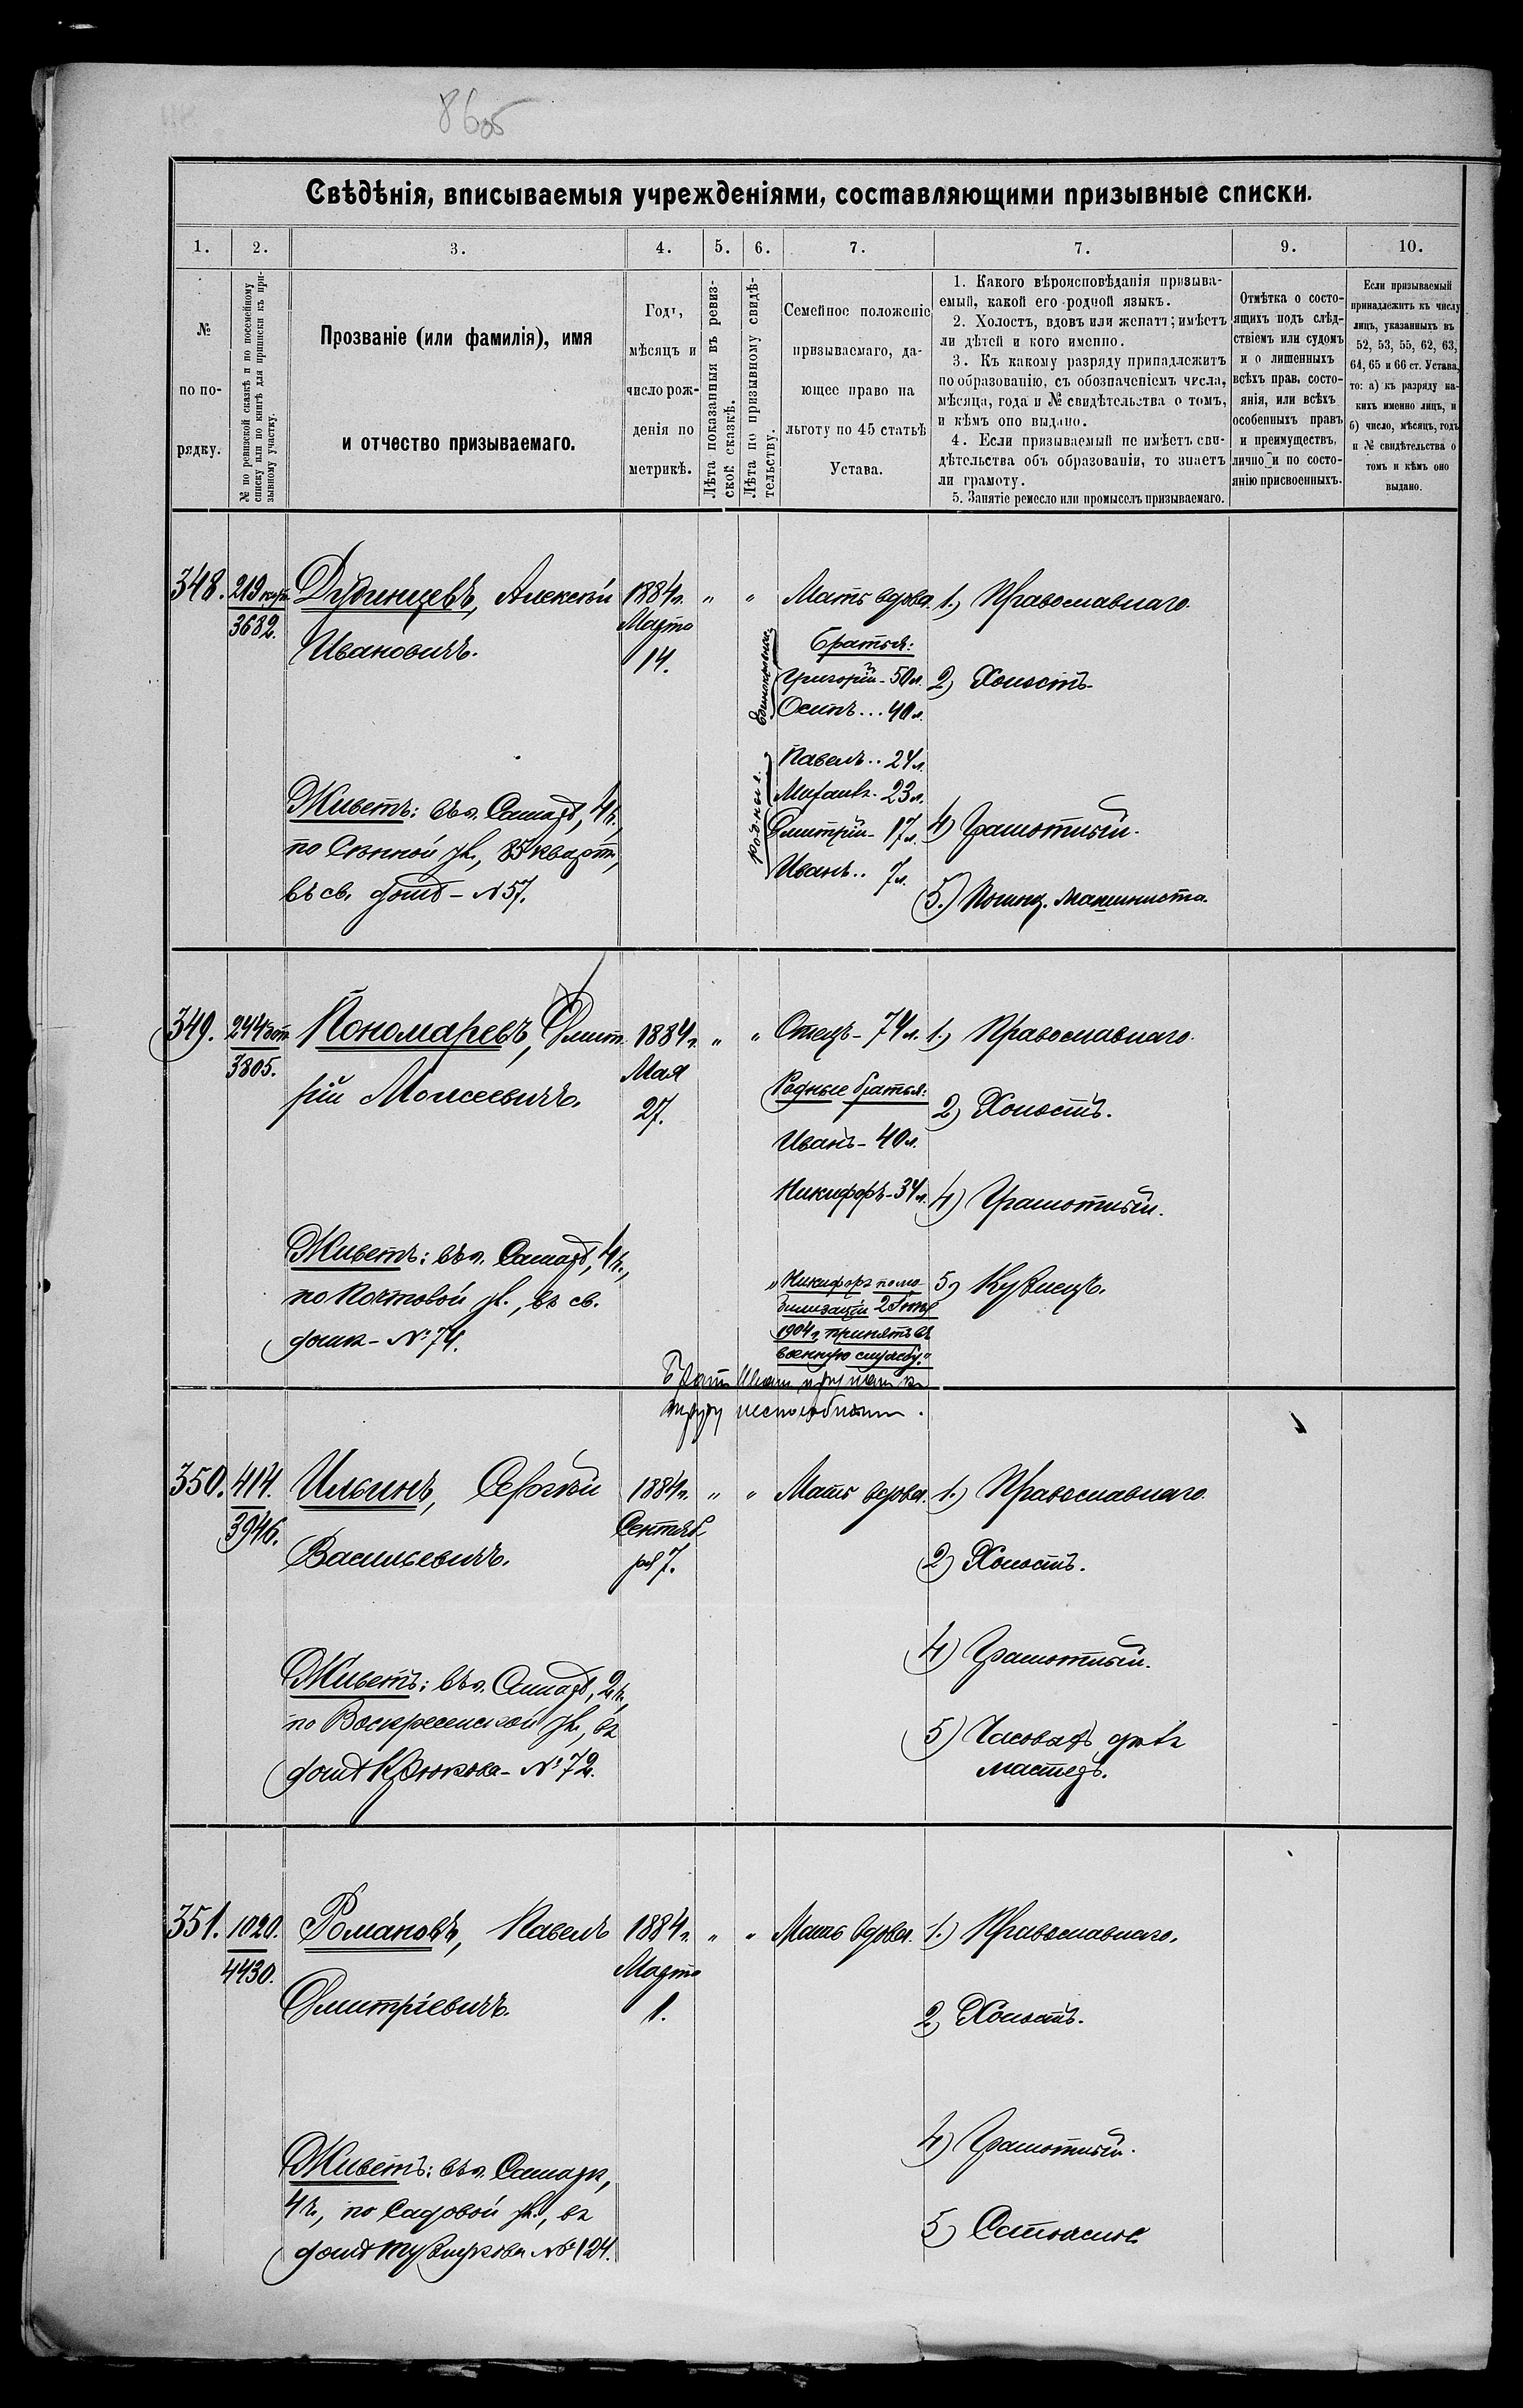 8605
Свѣдѣнія, вписываемыя учрежденіями, составляющими призывные списки.
1. 2. 3. 4. 5. 6. 7. 7. 9. 10.
№
по по-
рядку.
№ по ревизской сказкѣ и по посемейному
списку или по книгѣ для приписки къ при-
зывному участку.
Прозваніе (или фамилія), имя
и отчество призываемаго.
Годъ,
мѣсяцъ и
число рож-
денія по
метрикѣ.
Лѣта показанныя въ ревиз-
ской сказкѣ.
Лѣта по призывному свидѣ-
тельству.
Семейное положеніе
призываемаго, да-
ющее право на
льготу по 45 статьѣ
Устава.
1. Какого вѣроисповѣданія призыва-
емый, какой его родной языкъ.
2. Холостъ, вдовъ или женатъ; имѣетъ
ли дѣтей и кого именно.
3. Къ какому разряду принадлежитъ
по образованію, съ обозначеніемъ числа,
мѣсяца, года и № свидѣтельства о томъ,
и кѣмъ оно выдано.
4. Если призываемый не имѣетъ сви-
дѣтельства объ образованіи, то знаетъ
ли грамоту.
5. Занятіе ремесло или промыселъ призываемаго.
Отмѣтка о состо-
ящихъ подъ слѣд-
ствіемъ или судомъ
и о лишенныхъ
всѣхъ прав, состо-
янія, или всѣхъ
особенныхъ правъ
и преимуществъ,
лично и по состо-
янію присвоенныхъ.
Если призываемый
принадлежитъ къ числу
лицъ, указанныхъ въ
52, 53, 55, 62, 63,
64, 65 и 66 ст. Устава,
то: а) къ разряду ка-
кихъ именно лицъ, и
б) число, мѣсяцъ, годъ
и № свидѣтельства о
томъ и кѣмъ оно
выдано.
348.
219
3682.
Дудинцевъ, Алексѣй
Ивановичъ.
Живетъ: въ г. Самарѣ, 4 ч.,
по Сѣнной ул., 85 кварт.,
въ св. домѣ - № 57.
1884 г.
Марта
14.
" "
Мать вдова.
Братья:
единокровные
Григорій - 50 л.
Осипъ... 40 л.
родные
Павелъ.. 24 л.
Михаилъ - 23 л.
Дмитрій - 17 л.
Иванъ.. 7 л.
1.) Православнаго.
2) Холостъ.
4) Грамотный.
5.) Помощ. машиниста.
349.
244
3805.
Пономаревъ, Дмит-
рій Моисеевичъ.
Живетъ: въ г. Самарѣ, 4 ч.,
по Почтовой ул., въ св.
домѣ - № 74.
1884 г.
Мая
27.
" "
Отецъ - 74 л.
Родные братья:
Иванъ - 40 л.
Никифоръ - 34 л.
"Никифоръ по мо-
билизаціи 2 Іюня
1904 г. принятъ въ
военную службу."
Братъ Иванъ признанъ къ
труду неспособнымъ.
1.) Православнаго.
2) Холостъ.
4) Грамотный.
5) Кузнецъ.
350.
414.
3946.
Ильинъ, Сергѣй
Васильевичъ.
Живетъ: въ г. Самарѣ, 2 ч.,
по Воскресенской ул., въ
домѣ Крюкова - № 72.
1884 г.
Сентяб-
ря 7.
" "
Мать вдова.
1.) Православнаго.
2) Холостъ.
4) Грамотный.
5) Часовыхъ дѣлъ
мастеръ.
351.
1020.
4430.
Романовъ, Павелъ
Дмитріевичъ.
Живетъ: въ г. Самарѣ,
4 ч., по Садовой ул., въ
домѣ № 124.
1884 г.
Марта
1.
" "
Мать вдова.
1.) Православнаго.
2) Холостъ.
4) Грамотный.
5)